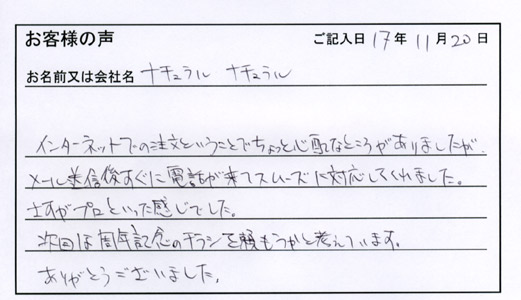 お客様の声 ご記入日 17年 11月 20日
お名前又は会社名 ナチュラル ナチュラル
インターネットでの注文ということでちょっと心配なところがありましたが
メール送信後すぐに電話が来てスムーズに対応してくれました。
さすがプロといった感じでした。
次回は周年記念のチラシを頼もうかと考えています。
ありがとうございました。